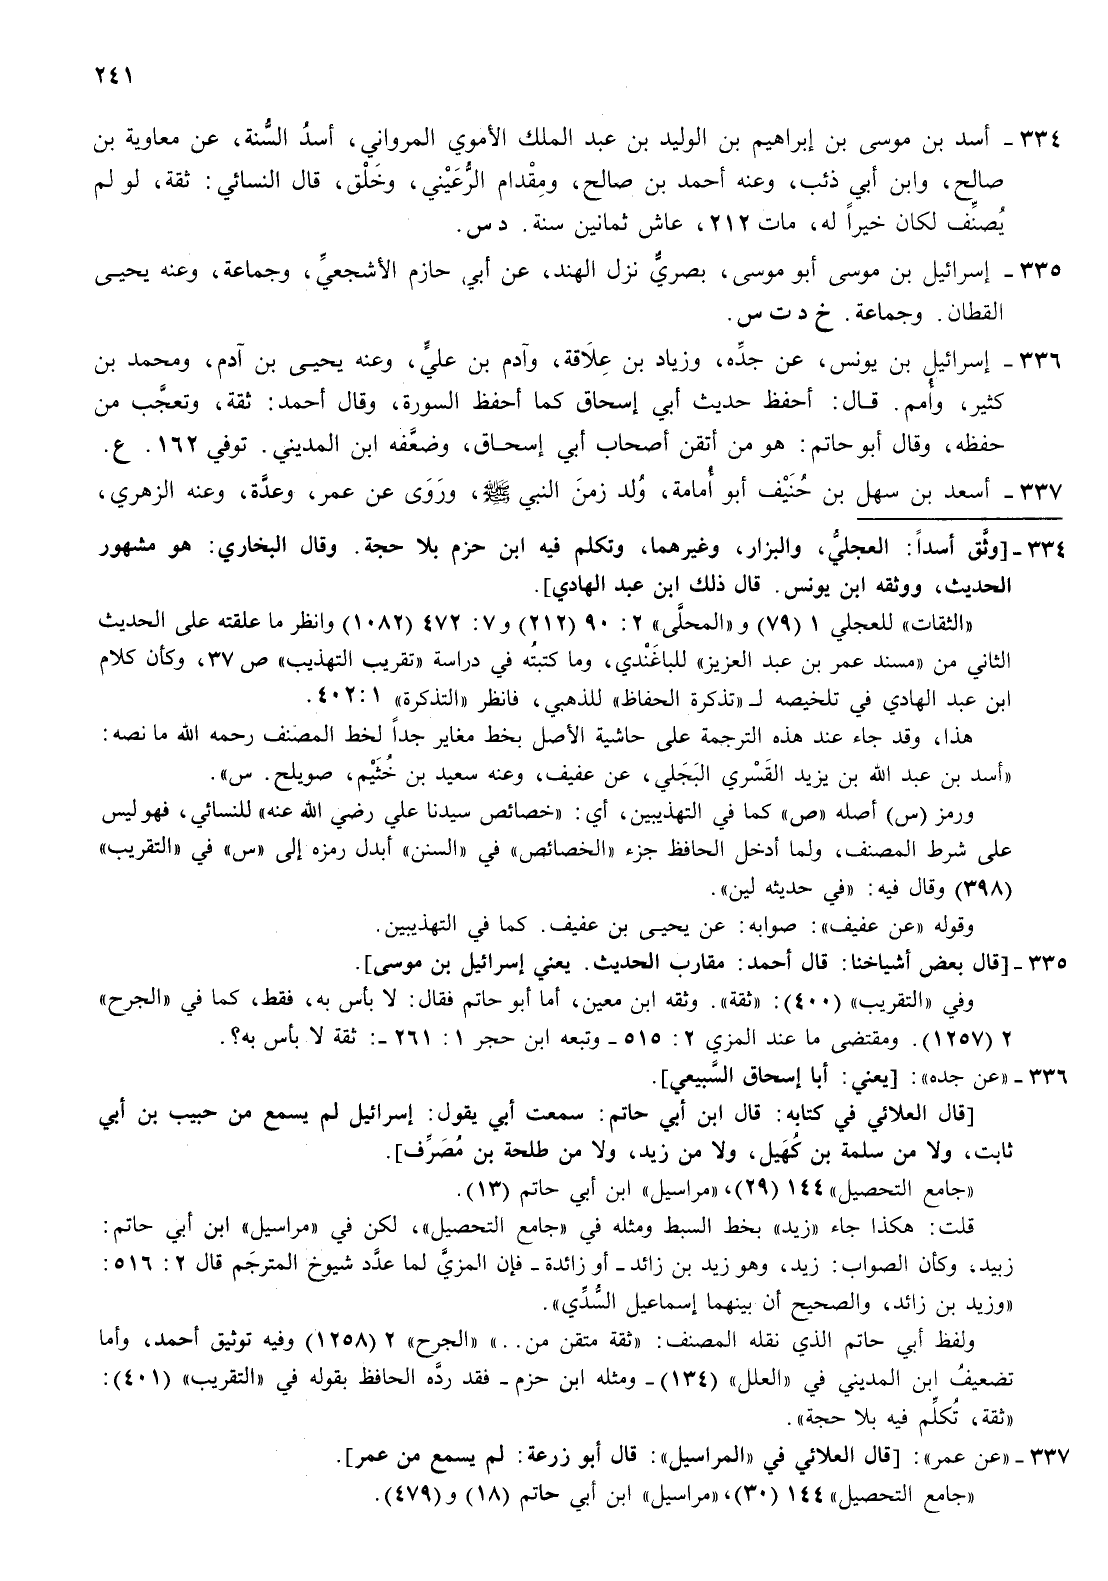 ٢٤١
٣٣٤ ـ أسد بن موسى بن إبراهيم بن الوليد بن عبد الملك الأموي المرواني، أسدُ السُّنة، عن معاوية بن
صالح، وابن أبي ذئب، وعنه أحمد بن صالح، ومِقْدام الرُّعَيْني، وخَلْق، قال النسائي: ثقة، لو لم
يُصنِّف لكان خيراً له، مات ٢١٢، عاش ثمانين سنة. د س.
٣٣٥ ـ إسرائيل بن موسى أبو موسى، بصريٌّ نزل الهند، عن أبي حازم الأشجعيِّ، وجماعة، وعنه يحيـى
القطان. وجماعة. خ د ت س.
٣٣٦ ـ إسرائيل بن يونس، عن جدِّه، وزياد بن عِلَاقة، وآدم بن عليٍّ، وعنه يحيـى بن آدم، ومحمد بن
كثير، وأُمم. قـال: أحفظ حديث أبي إسحاق كما أحفظ السورة، وقال أحمد: ثقة، وتعجَّب من
حفظه، وقال أبو حاتم: هو من أتقن أصحاب أبي إسحـاق، وضعَّفه ابن المديني. توفي ١٦٢. ع.
٣٣٧ ـ أسعد بن سهل بن حُنَيْف أبو أُمامة، وُلد زمنَ النبي ﷺ، ورَوَى عن عمر، وعدَّة، وعنه الزهري،
٣٣٤ ـ [وثَّق أسداً: العجليُّ، والبزار، وغيرهما، وتكلم فيه ابن حزم بلا حجة. وقال البخاري: هو مشهور
الحديث، ووثقه ابن يونس. قال ذلك ابن عبد الهادي].
«الثقات» للعجلي ١ (٧٩) و«المحلَّى» ٢: ٩٠ (٢١٢) و٧: ٤٧٢ (١٠٨٢) وانظر ما علقته على الحديث
الثاني من «مسند عمر بن عبد العزيز» للباغَنْدي، وما كتبتُه في دراسة «تقريب التهذيب» ص ٣٧، وكأن كلام
ابن عبد الهادي في تلخيصه لـ«تذكرة الحفاظ» للذهبي، فانظر «التذكرة» ١: ٤٠٢.
هذا، وقد جاء عند هذه الترجمة على حاشية الأصل بخط مغاير جداً لخط المصنف رحمه الله ما نصه:
«أسد بن عبد الله بن يزيد القَسْري البَجَلي، عن عفيف، وعنه سعيد بن خُثَيْم، صويلح. س».
ورمز (س) أصله «ص» كما في التهذيبين، أي: «خصائص سيدنا علي رضي الله عنه» للنسائي، فهو ليس
على شرط المصنف، ولما أدخل الحافظ جزء «الخصائص» في «السنن» أبدل رمزه إلى «س» في «التقريب»
(٣٩٨) وقال فيه: «في حديثه لين».
وقوله «عن عفيف»: صوابه: عن يحيـى بن عفيف. كما في التهذيبين.
٣٣٥ ـ [قال بعض أشياخنا: قال أحمد: مقارب الحديث. يعني إسرائيل بن موسى].
وفي «التقريب» (٤٠٠): «ثقة». وثقه ابن معين، أما أبو حاتم فقال: لا بأس به، فقط، كما في «الجرح»
٢ (١٢٥٧). ومقتضى ما عند المزي ٢: ٥١٥ ـ وتبعه ابن حجر ١: ٢٦١ ـ: ثقة لا بأس به؟.
٣٣٦ ـ «عن جده»: [يعني: أبا إسحاق السَّبيعي].
[قال العلائي في كتابه: قال ابن أبي حاتم: سمعت أبي يقول: إسرائيل لم يسمع من حبيب بن أبي
ثابت، ولا من سلمة بن كُهَيل، ولا من زيد، ولا من طلحة بن مُصَرِّف].
«جامع التحصيل» ١٤٤ (٢٩)، «مراسيل» ابن أبي حاتم (١٣).
قلت: هكذا جاء «زيد» بخط السبط ومثله في «جامع التحصيل»، لكن في «مراسيل» ابن أبي حاتم:
زبيد، وكأن الصواب: زيد، وهو زيد بن زائد ـ أو زائدة ـ فإن المزيَّ لما عدَّد شيوخ المترجَم قال ٢: ٥١٦:
«وزيد بن زائد، والصحيح أن بينهما إسماعيل السُّدِّي».
ولفظ أبي حاتم الذي نقله المصنف: «ثقة متقن من...» «الجرح» ٢ (١٢٥٨) وفيه توثيق أحمد، وأما
تضعيفُ ابن المديني في «العلل» (١٣٤) ـ ومثله ابن حزم ـ فقد ردَّه الحافظ بقوله في «التقريب» (٤٠١):
«ثقة، تُكلِّم فيه بلا حجة».
٣٣٧ ـ «عن عمر»: [قال العلائي في «المراسيل»: قال أبو زرعة: لم يسمع من عمر].
«جامع التحصيل» ١٤٤ (٣٠)، «مراسيل» ابن أبي حاتم (١٨) و(٤٧٩).